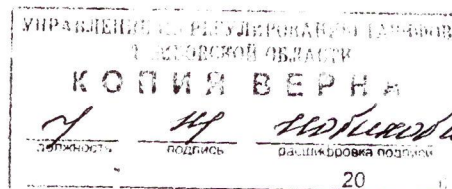 УПРАВЛЕНИЕ ПО РЕГУЛИРОВАНИЮ ТАРИФОВ
ОБЛАСТИ
КОПИЯ ВЕРНА
должность подпись расшифровка подписи
20 г.